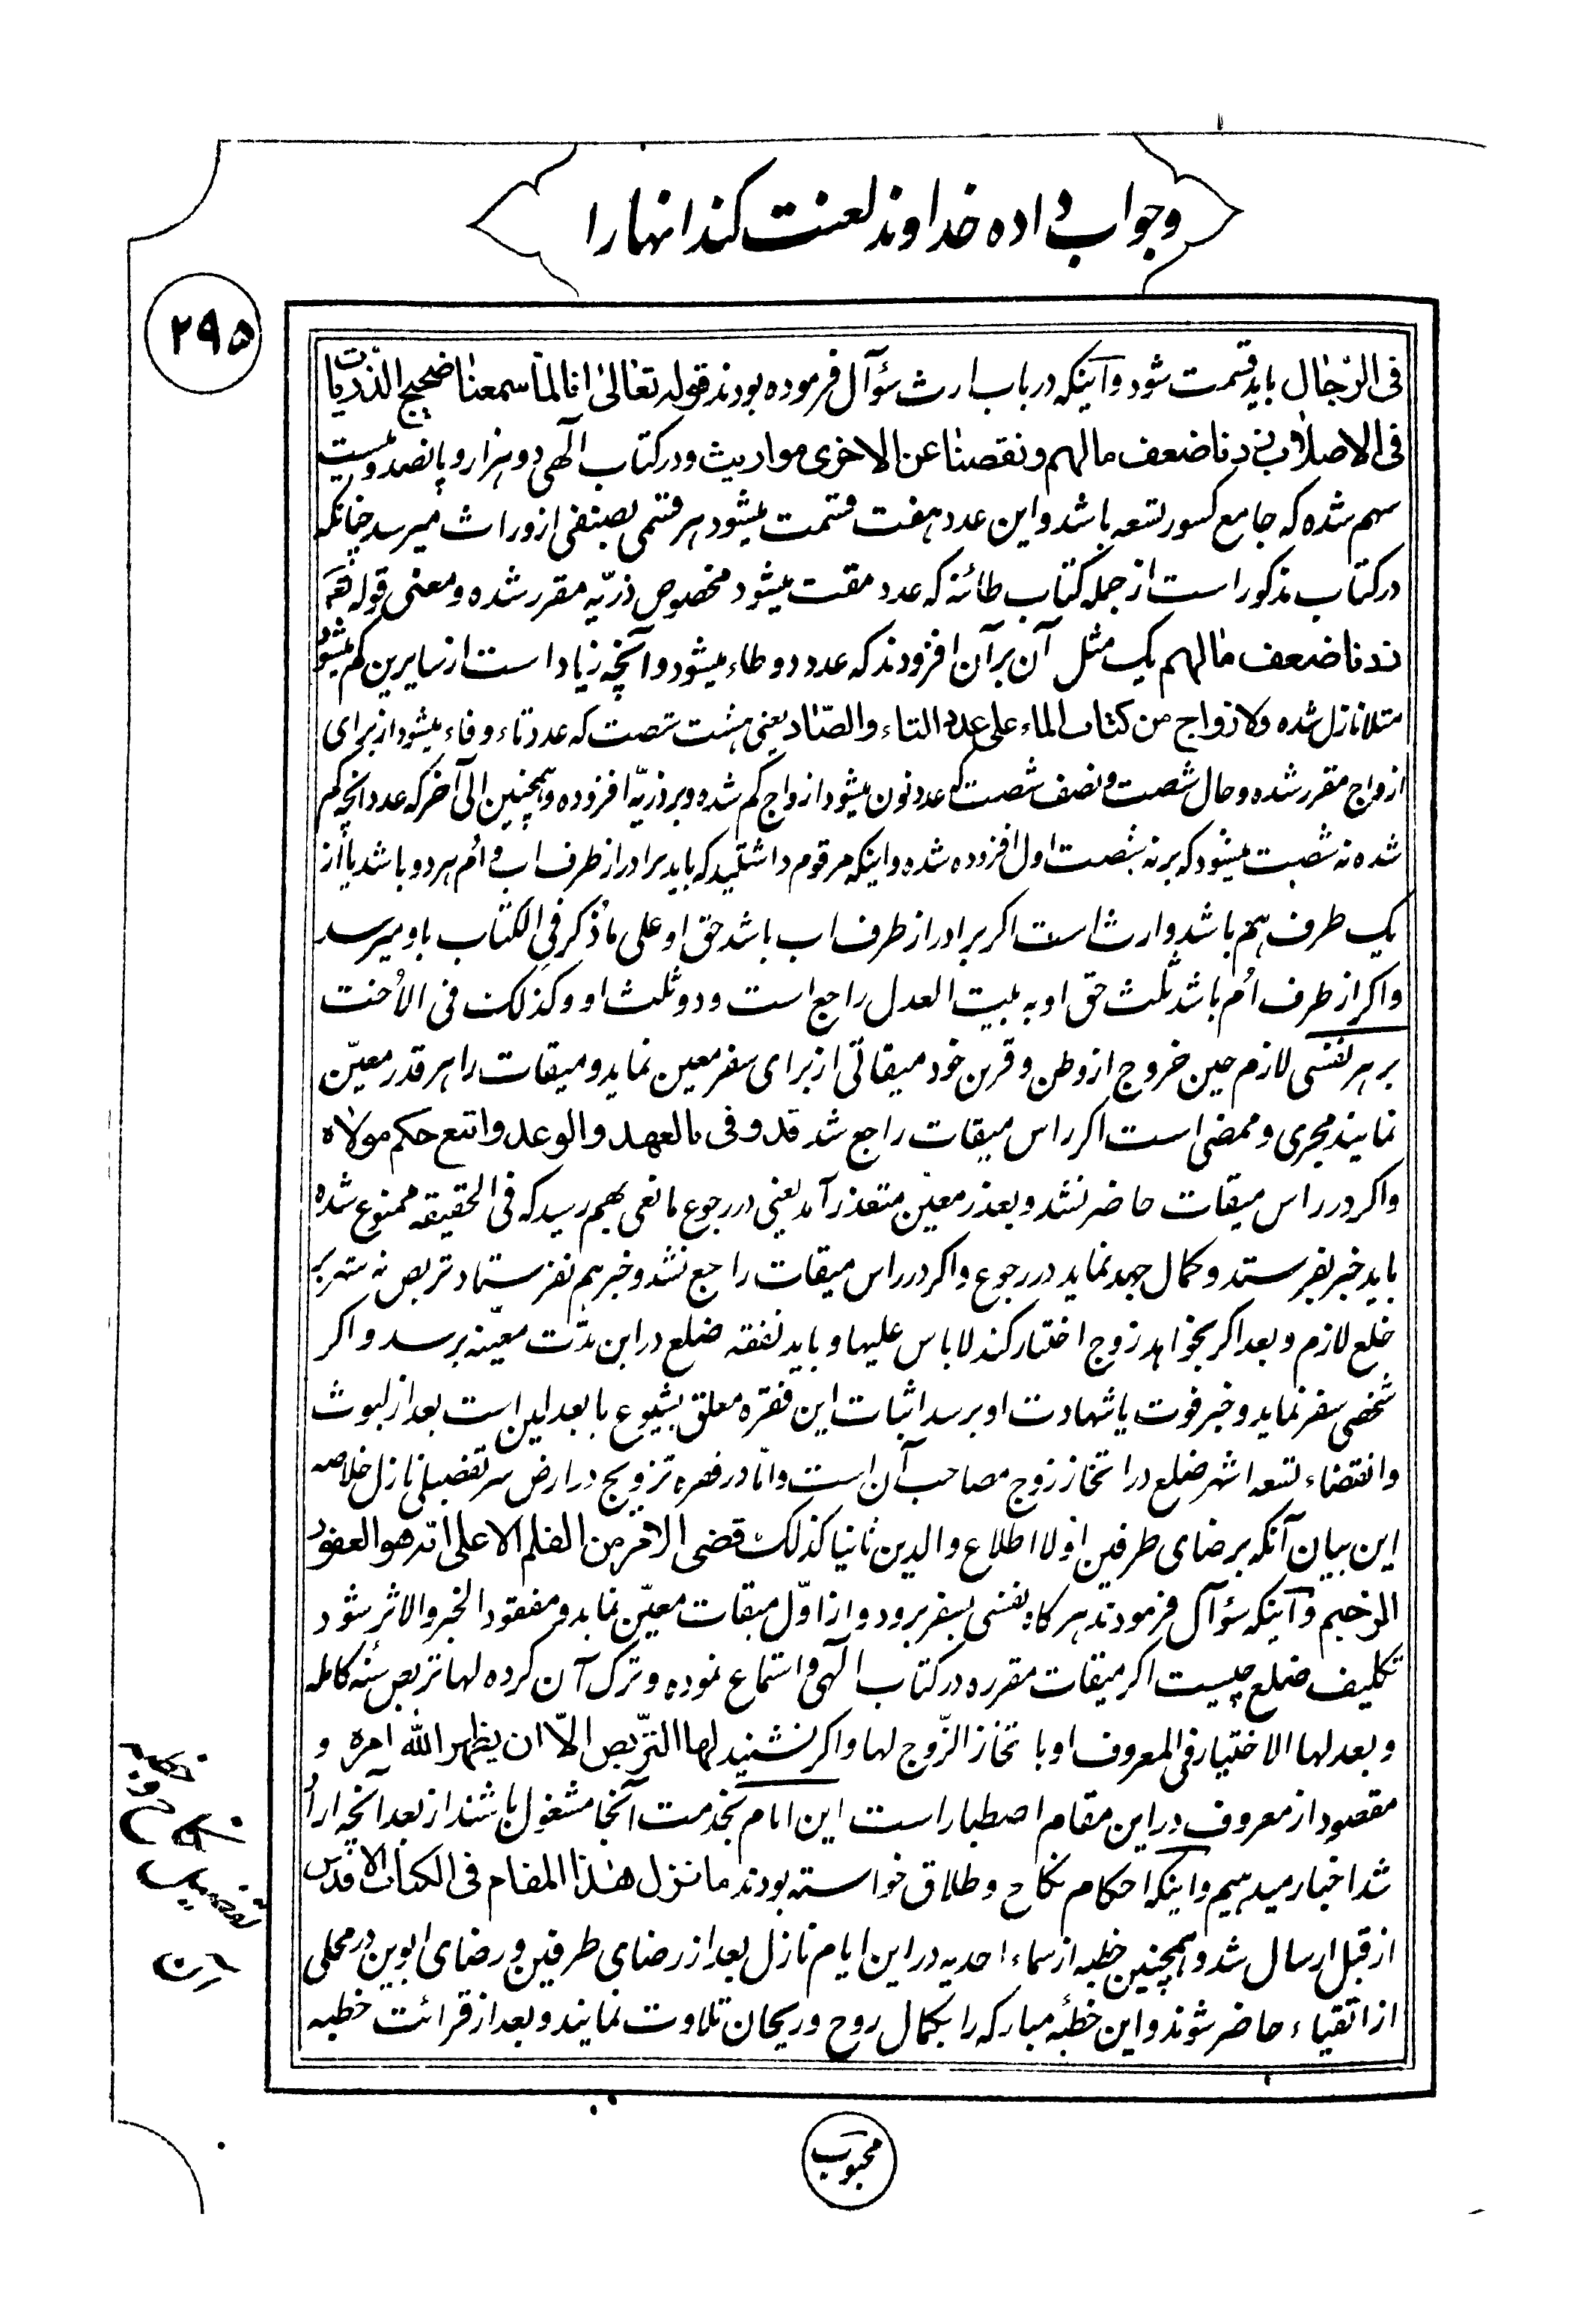 وجواب داده خداوند لعنت کند انها را
۲۹۵
فی الرّجال باید قسمت شود و اینکه در باب ارث سؤال فرموده بودند قوله تعالی انا لما سمعنا ضجیج الذّریات
فی الاصلاب زدنا ضعف مالهم و نقصنا عن الاخری مواریث و در کتاب الهی دو هزار و پانصد و بیست
سهم شده که جامع کسور تسعه باشد و این عدد هفت قسمت میشود هر قسمی بصنفی از وراث میرسد چنانکه
در کتاب مذکور است از جمله کتاب طاء نه که عدد مقت میشود مخصوص ذریّه مقرر شده و معنی قوله تعه
زدنا ضعف مالهم یک مثل آن بر آن افزودند که عدد دو طاء میشود و آنچه زیاد است از سایرین کم میشود
مثلا نازل شده و لازواج من کتاب الهاء علی عدد التاء والفاء یعنی هشت شصت که عدد تاء و فاء میشود از برای
ازواج مقرر شده و حال شصت و نصف شصت که عدد نون میشود ازواج کم شده و بر ذریّه افزوده و همچنین الی آخر که عدد انچه کم
شده نه شصت میشود که بر نه شصت اول افزوده شده و اینکه مرقوم داشتید که باید برادر از طرف اب و ام هر دو باشد یا از
یک طرف هم باشد وارث است اکر برادر از طرف اب باشد حق او علی ما ذکر فی الکتاب باو میرسد
و اکر از طرف اُم باشد ثلث حق او به بیت العدل راجع است و دو ثلث او و کذلک فی الاُخت
بر هر نفسی لازم حین خروج از وطن و قرین خود میقاتی از برای سفر معین نماید و میقات را هر قدر معیّن
نمایند مجری و ممضی است اکر راس میقات راجع شد قد وفی بالعهد والوعد واتبع حکم مولاه
و اکر در راس میقات حاضر نشد و بعذر معیّن متعذر آمد یعنی در رجوع مانعی بهم رسید که فی الحقیقه ممنوع شده
باید خبر بفرستد و کمال جهد نماید در رجوع و اکر در راس میقات راجع نشد و خبر هم نفرستاد تربص نه شهر بر
ضلع لازم و بعد اکر بخواهد زوج اختیار کند لا باس علیها و باید نفقه ضلع در این مدّت معیّنه برسد و اکر
شخصی سفر نماید و خبر فوت یا شهادت او برسد اثبات این فقره معلق بشیوع یا بعدلین است بعد از لبوث
و انقضاء تسعه اشهر ضلع در اتخاذ زوج مصاحب آن است و امّا در فقره تزویج در ارض سر تفصیلی نازل خلاصه
این بیان آنکه بر رضای طرفین اولا اطلاع والدین ثانیا کذلک قضی الامر من القلم الاعلی انّه هو الغفور
الرحیم و اینکه سؤال فرمودند هرکاه نفسی بسفر برود و از اوّل میقات معیّن نماید و مفقود الخبر والاثر شود
تکلیف ضلع چیست اکر میقات مقرره در کتاب الهی را استماع نموده و ترک آن کرده لها تربص سنه کامله
و بعد لها الاختیار فی المعروف او باتخاذ الزّوج لها و اکر نشنید لها التربّص الّا ان یظهر الله امره و
مقصود از معروف در این مقام اصطبار است این ایام بخدمت آنجا مشغول باشند از بعد آنچه اراده
شد اخبار میدهیم و اینکه احکام نکاح و طلاق خواسته بودند ما نزل هذا المقام فی الکتاب الاقدس
از قبل ارسال شد و همچنین خطبه از سماء احدیه در این ایام نازل بعد از رضای طرفین و رضای ابوین در محلی
از اتقیاء حاضر شوند و این خطبه مبارکه را بکمال روح و ریحان تلاوت نمایند و بعد از قرائت خطبه
محبوب